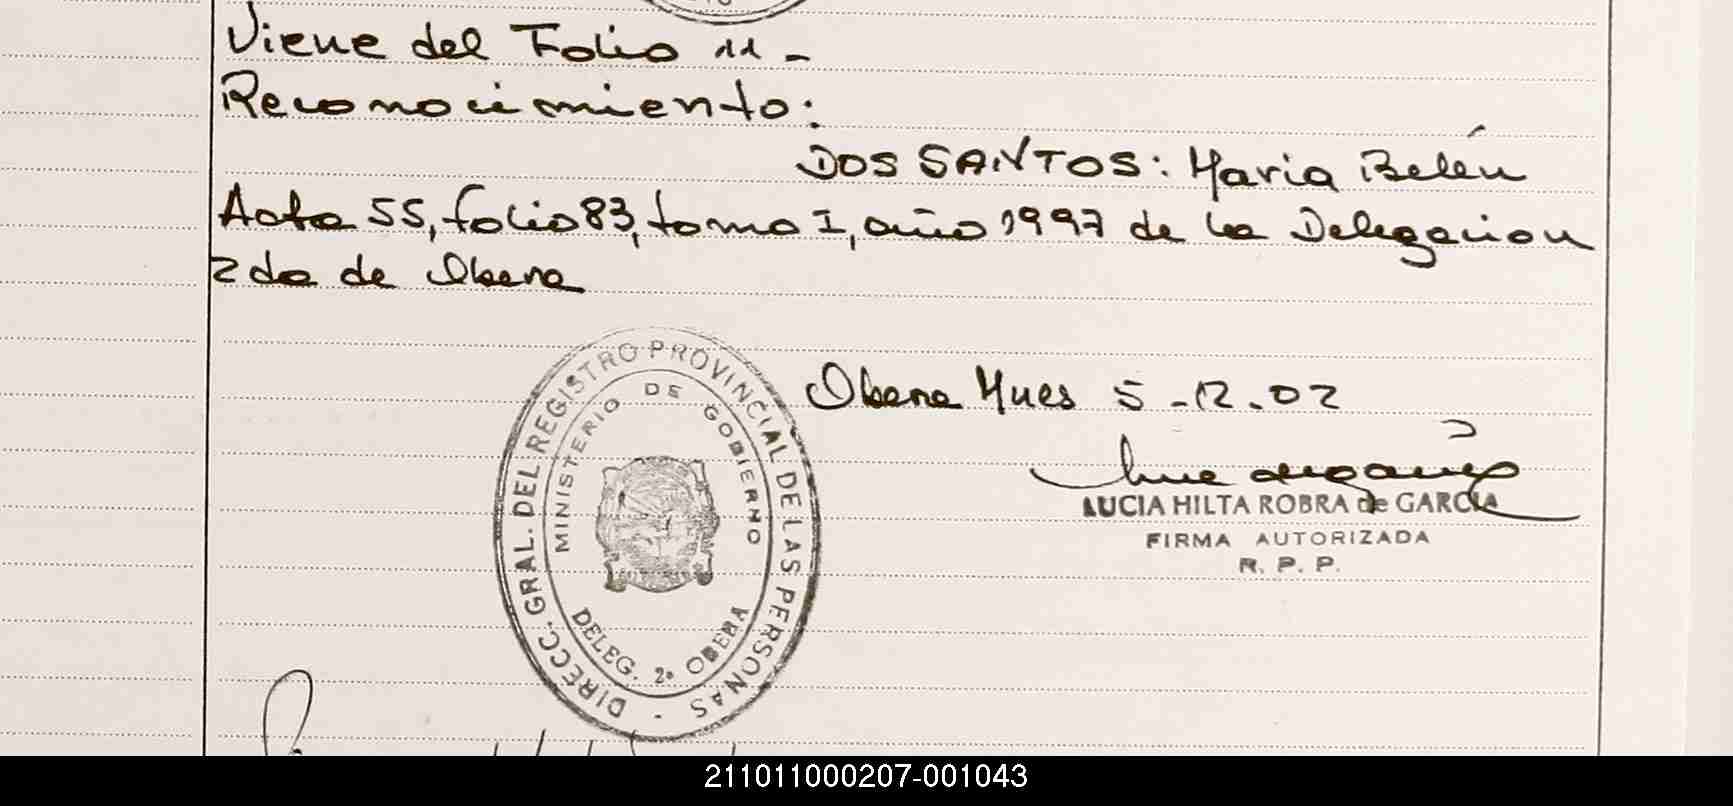 Viene del Folio 11 -
Reconocimiento:
DOS SANTOS: Maria Belén
Acta 55, folio 83, tomo I, año 1997 de la Delegacion
2da de Obera
DIRECC. GRAL. DEL REGISTRO PROVINCIAL DE LAS PERSONAS -
MINISTERIO DE GOBIERNO
DELEG. 2º OBERA
Obera Mnes 5-12.02
LUCIA HILTA ROBRA de GARCIA
FIRMA AUTORIZADA
R. P. P.
211011000207-001043